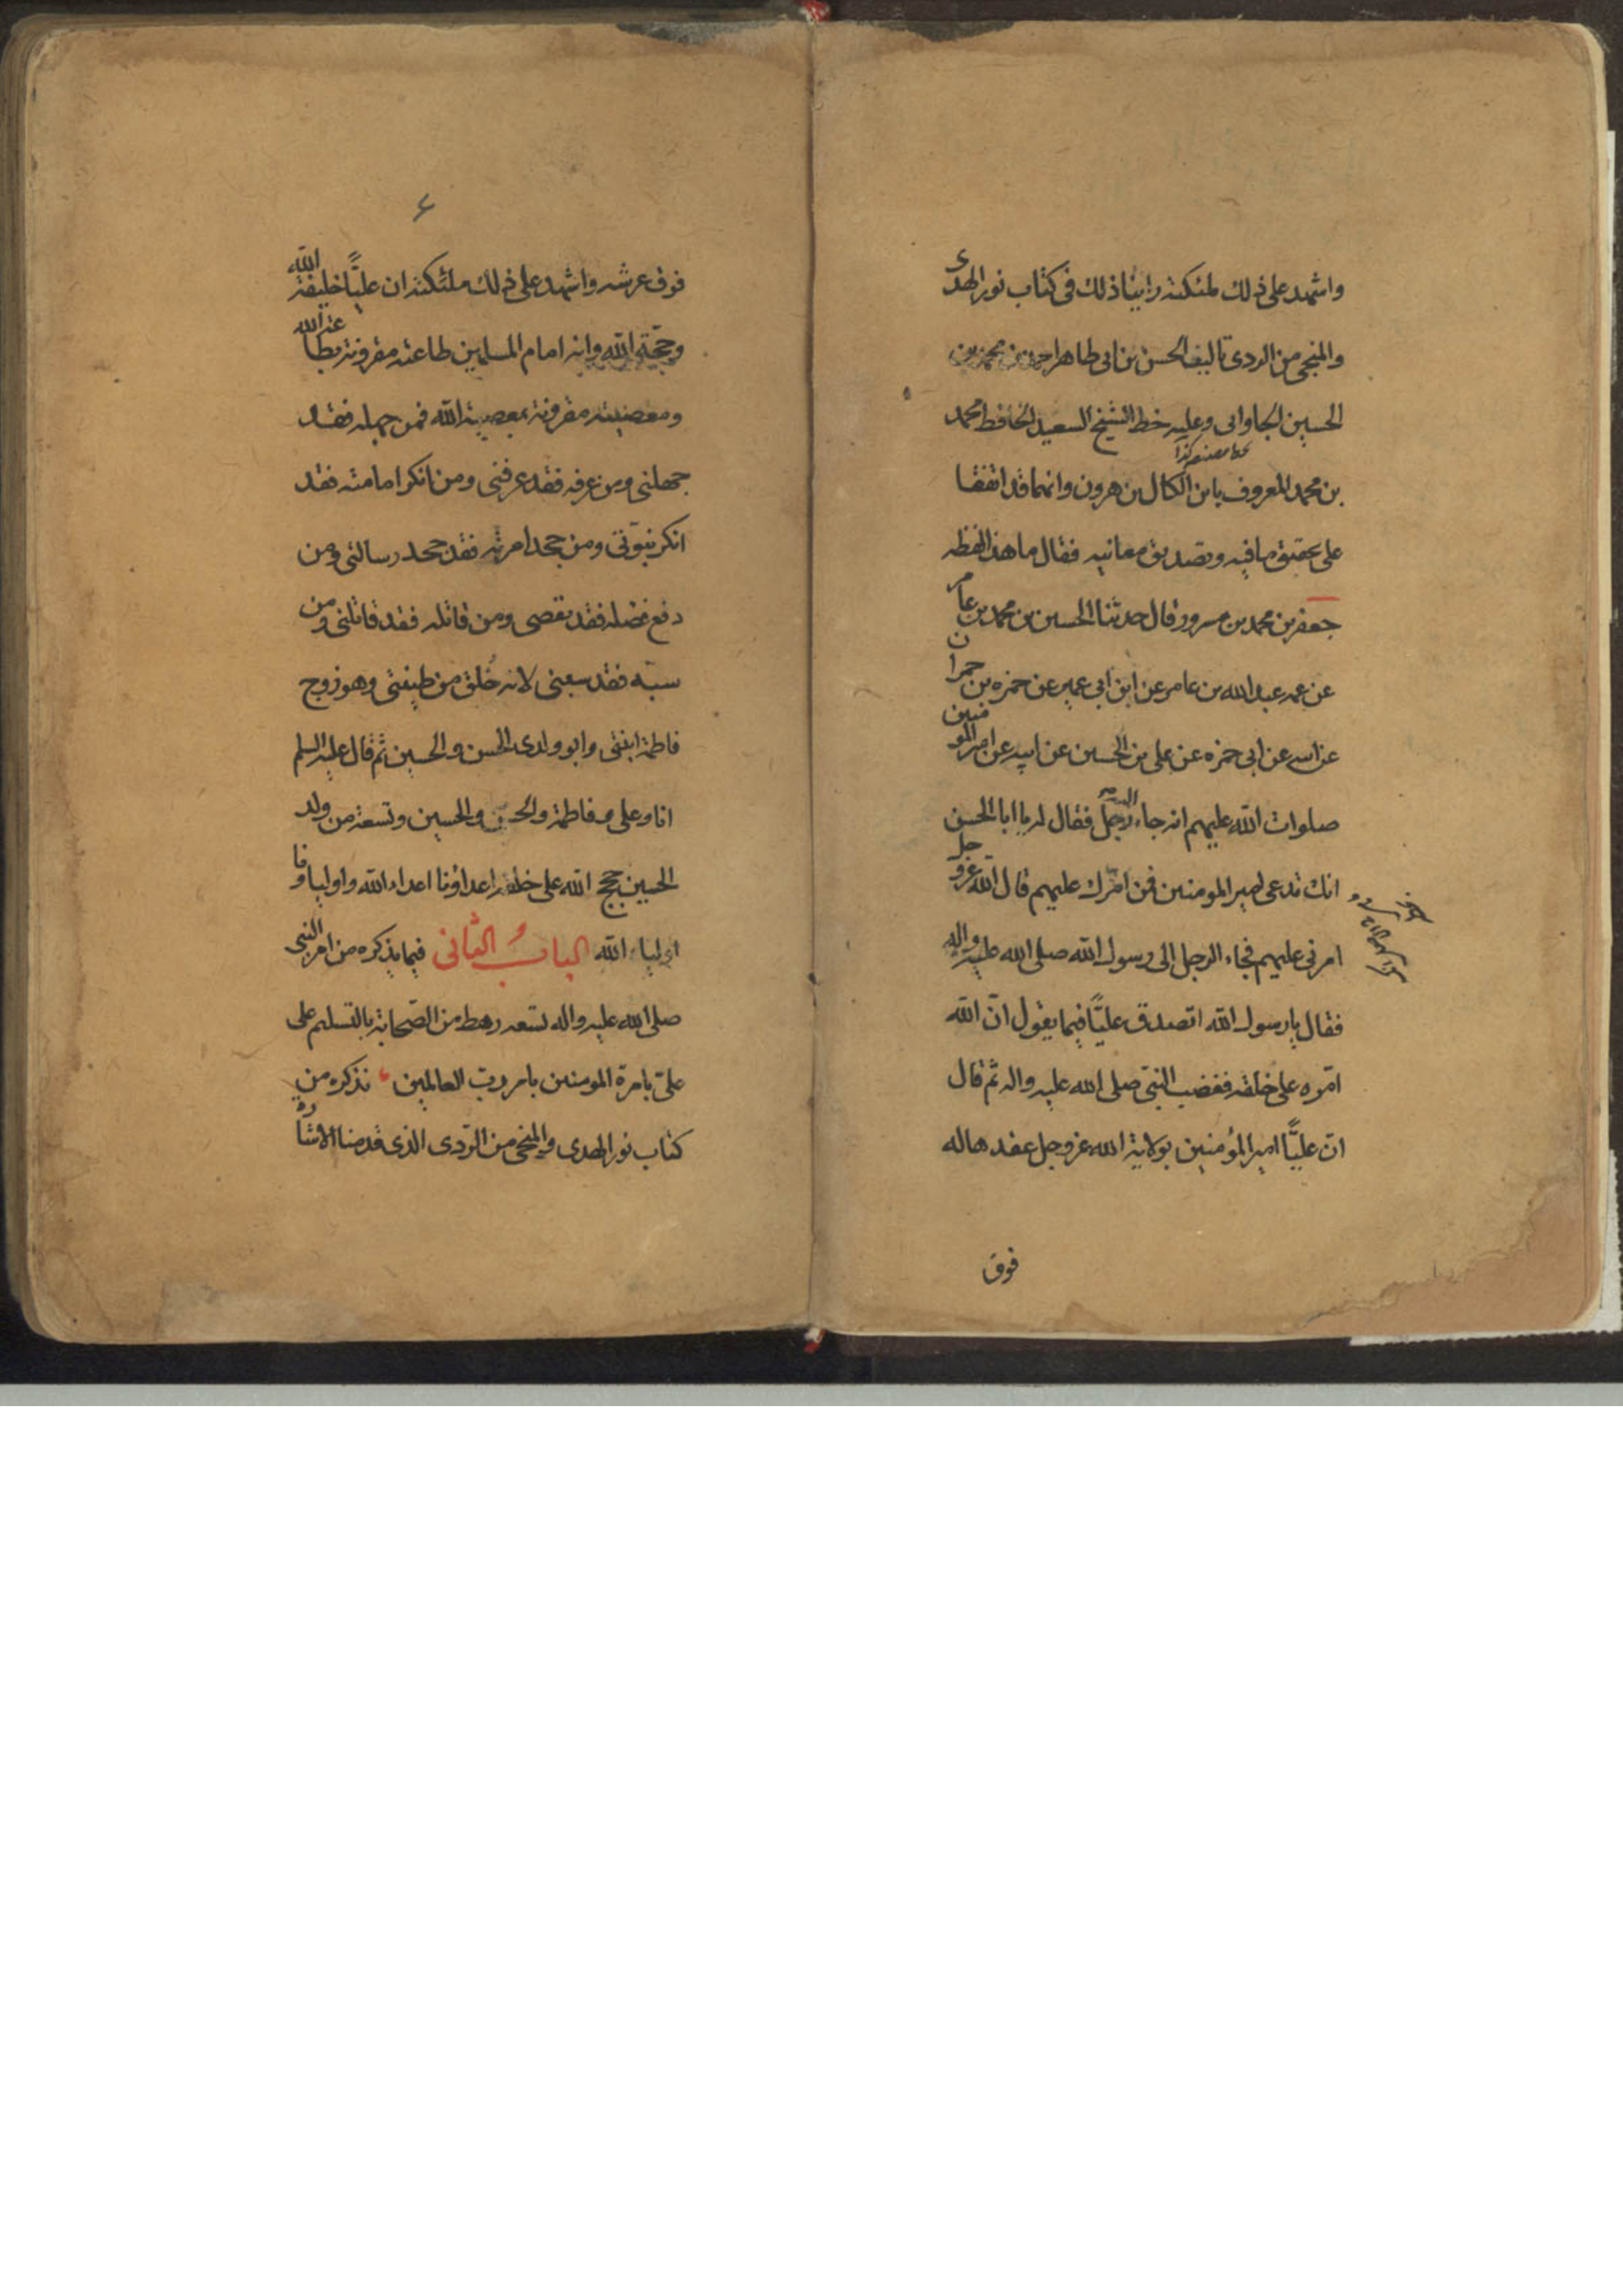 واشهد على ذلك ملئكته راينا ذلك فى كتاب نور الهدى
والمنجى من الردى تاليف الحسن بن ابى طاهر احمد بن محمد بن
الحسين الجاوانى وعليه خط الشيخ السعيد الحافظ محمد
بن محمد المعروف بابن الكال بن هرون وانهما قد اتفقا
على تحقيق ما فيه وتصديق معانيه فقال ما هذا لفظه
جعفر بن محمد بن مسرور قال حدثنا الحسين بن محمد بن عامر
عن عمه عبد الله بن عامر عن ابن ابى عمير عن حمزه بن حمران
عن ابيه عن ابى حمزه عن على بن الحسين عن ابيه عن امير المومنين
صلوات الله عليهم انه جاء اليه رجل فقال له يا ابا الحسن
انك تدعى امير المومنين فمن امّرك عليهم قال الله عزو جل
امرنى عليهم فجاء الرجل الى رسول الله صلى الله عليه واله
فقال يا رسول الله اتصدق عليّا فيما يقول انّ الله
امّره على خلقه فغضب النبىّ صلى الله عليه واله ثم قال
انّ عليّا امير المؤمنين بولاية الله عزوجل عقدها له
فوق
۶
فوق عرشه واشهد على ذلك ملئكته ان عليّا خليفة الله
وحجّة الله وانه امام المسلمين طاعته مقرونة بطاعة الله
ومعصيته مقرونة بمعصية الله فمن جهله فقد
جهلنى ومن عرفه فقد عرفنى ومن انكر امامته فقد
انكر نبوّتى ومن جحد امرته فقد جحد رسالتى ومن
دفع فضله فقد نقصى ومن قاتله فقد قاتلنى ومن
سبّه فقد سبنى لانه خُلق من طينتى وهو زوج
فاطمة ابنتى وابو ولدى الحسن والحسين ثم قال عليه السلم
انا وعلى وفاطمة والحسن والحسين وتسعة من ولد
الحسين حجج الله على خلقه اعداؤنا اعداء الله واولياؤنا
اولياء الله الباب الثانى فيما يذكره من امر النبى
صلى الله عليه واله تسعه رهط من الصّحابة بالتسليم على
علىّ بامرة المومنين بامر ربّ العالمين نذكره من
كتاب نور الهدى والمنجى من الرّدى الذى قدمنا الاشارة